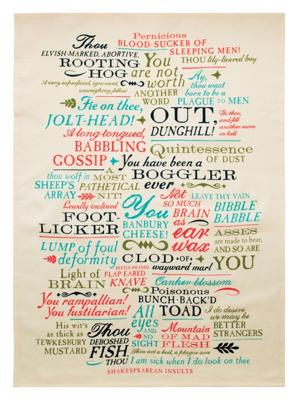 Pernicious
Thou BLOOD-SUCKER OF
ELVISH-MARKED, ABORTIVE, SLEEPING MEN!
ROOTING You THOU lily-livered boy
HOG are not
A very superficial, ignorant, unweighing fellow worth Ay, thou wast
ANOTHER born to be a
WORD PLAGUE TO MEN
Fie on thee,
JOLT-HEAD! OUT, DUNGHILL!
A long-tongued,
BABBLING Quintessence
GOSSIP OF DUST
You have been a
thou wolf in SHEEP'S ARRAY A MOST PATHETICAL NIT! BOGGLER ever
Not LEAVE THY VAIN
Lewdly inclined You SO MUCH BIBBLE
FOOT LICKER BRAIN BABBLE
BANBURY CHEESE! as ear wax
LUMP of foul deformity ASSES are made to bear, AND SO ARE YOU
CLOD of wayward marl!
Light of BRAIN BEETLE-HEADED FLAP-EARED KNAVE Canker-blossom
You rampallian! Poisonous
You fustilarian! BUNCH-BACK'D
All eyes AND NO sight TOAD I do desire we may be BETTER STRANGERS
His wit's as thick as TEWKESBURY MUSTARD
Thou DEBOSHED FISH, Mountain OF MAD FLESH
Thou art a boil, a plague sore
THOU I am sick when I do look on thee
SHAKESPEAREAN INSULTS